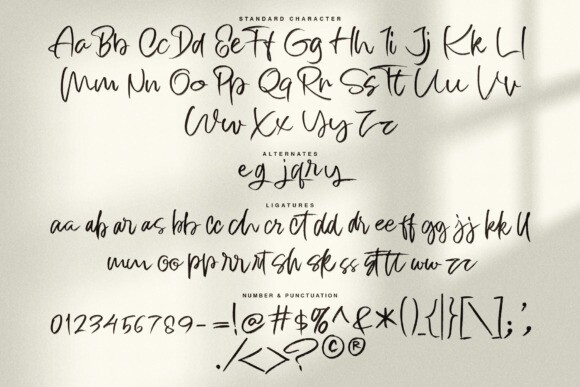 STANDARD CHARACTER
Aa Bb Cc Dd Ee Ff Gg Hh Ii Jj Kk Ll
Mm Nn Oo Pp Qq Rr Ss Tt Uu Vv
Ww Xx Yy Zz
ALTERNATES
e g j q r y
LIGATURES
aa ab ar as bb cc ch cr ct dd dr ee ff gg jj kk ll
mm oo pp rr rt sh sk ss st tt ww zz
NUMBER & PUNCTUATION
0123456789-=!@#$%^&*()_{|}[\];',
./<>?©®